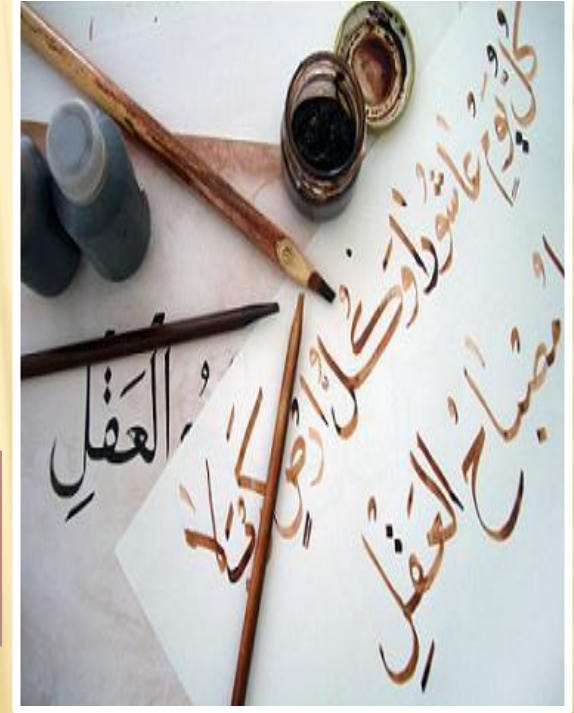 كُلُّ يَوْمٍ عَاشُورَا وَكُلُّ ارْضٍ كَرْبَلَا
مِصْبَاحُ العَقْلِ
العَقْلِ